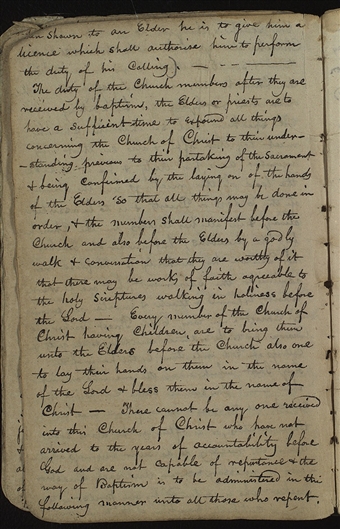 en shown to an Elder he is to give him a
licence which shall authorise him to perform
the duty of his Calling). —
The duty of the Church members after they are
received by baptism, the Elders or priests are to
have a sufficient time to expound all things
concerning the Church of Christ to their under-
-standing previous to their partaking of the Sacrament
& being confirmed by the laying on of the hands
of the Elders so that all things may be done in
order, & the members shall manifest before the
Church and also before the Elders by a godly
walk & conversation that they are worthy of it
that there may be works of faith agreeable to
the holy Scriptures walking in holiness before
the Lord — Every member of the Church of
Christ having Children are to bring them
unto the Elders before the Church also one
to lay their hands on them in the name
of the Lord & bless them in the name of
Christ — There cannot be any one received
into this Church of Christ who has not
arrived to the years of accountability before
God and are not capable of repentance & the
way of Baptism is to be administered in the
following manner unto all those who repent.